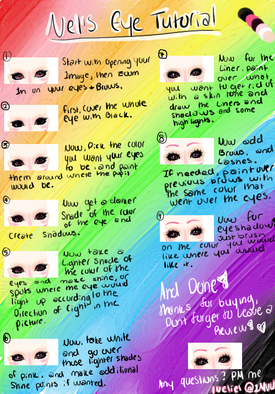 Nel's Eye Tutorial
1
Start with opening your
Image, then zoom
In on your eyes + Brows.
2
First, Cover the whole
eye with Black.
3
Now, Pick the color
you want your eyes
to be, and paint
them around where the pupil
would be.
4
Now get a darker
Shade of the color
of the eye and
Create Shadows.
5
Now take a
Lighter Shade of
the color of the
eyes and make shine, or
spots where the eye would
Light up according to the
Direction of Light in the
Picture.
6
Now, take White
and go over
those lighter shades
of pink, and make additional
Shine points if wanted.
7
Now for the
Liner, paint
over what
you want to get rid of
with a skin tone and
draw the Liners and
shadows and some
highlights.
8
Now add
Brows, and
Lashes.
If needed, paint over
previous brows with
the same color that
went over the eyes.
9
Now for
eyeshadow
Just brush
on the color you would
like where you would
like it.
And Done
Thanks for buying,
Dont forget to leave a
Review!
Any questions? PM me